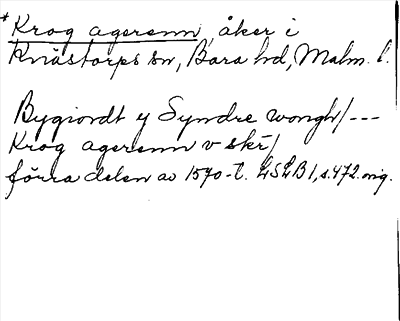 * Krog agerenn, åker i
Knästorps sn, Bara hd, Malm. l.
Bygiordt y Syndre wongh/---
Krog agerenn v skr/
förra delen av 1570-t. LSLB 1, s. 472. orig.